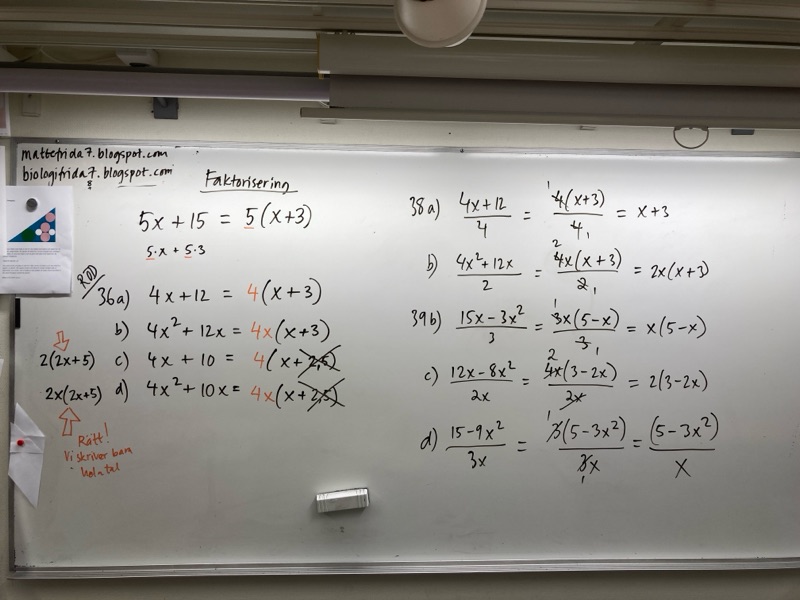 mattefrida7.blogspot.com
biologifrida7.blogspot.com
Faktorisering
5x + 15 = 5(x+3)
5·x + 5·3
RÖD
36a) 4x + 12 = 4(x+3)
b) 4x² + 12x = 4x(x+3)
2(2x+5) c) 4x + 10 = 4(x+2,5)
2x(2x+5) d) 4x² + 10x = 4x(x+2,5)
Rätt!
Vi skriver bara
heltal
38a) (4x+12)/4 = 4(x+3)/4 = x+3
b) (4x²+12x)/2 = 4x(x+3)/2 = 2x(x+3)
39b) (15x-3x²)/3 = 3x(5-x)/3 = x(5-x)
c) (12x-8x²)/2x = 4x(3-2x)/2x = 2(3-2x)
d) (15-9x²)/3x = 3(5-3x²)/3x = (5-3x²)/x